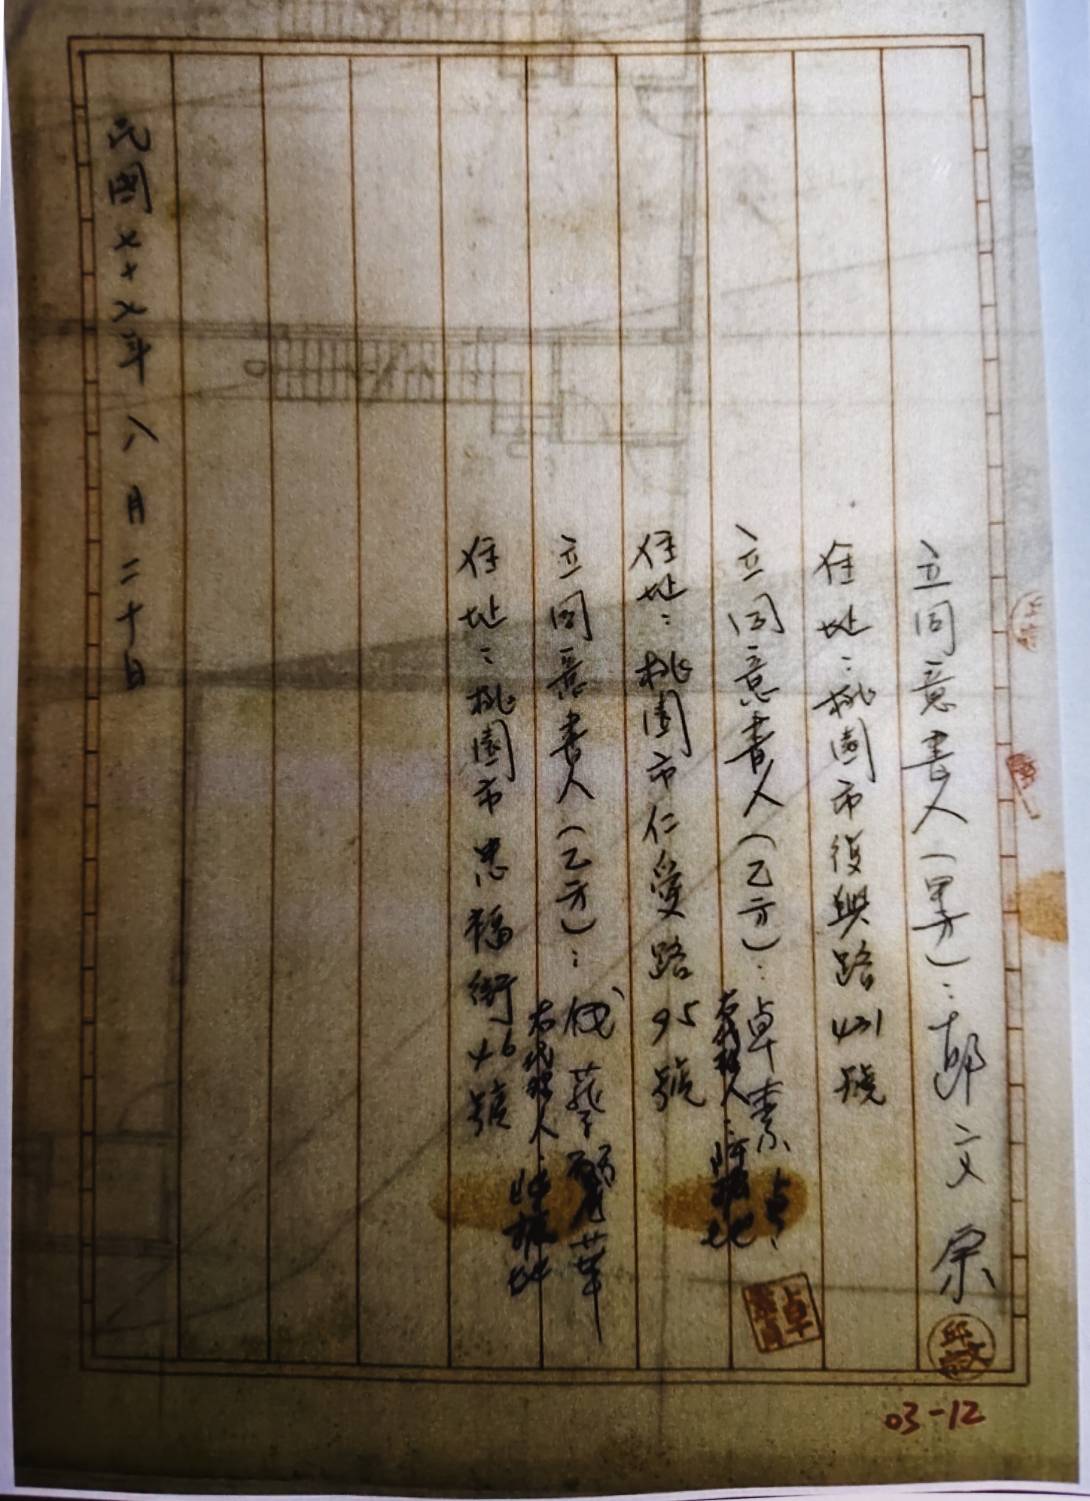 立同意書人(甲方):郭文宗
住址:桃園市復興路431號
立同意書人(乙方):卓素貞
右代理人:
住址:桃園市仁愛路95號
立同意書人(乙方):
右代理人:
住址:桃園市忠福街46號
民國七十七年八月二十日
03-12